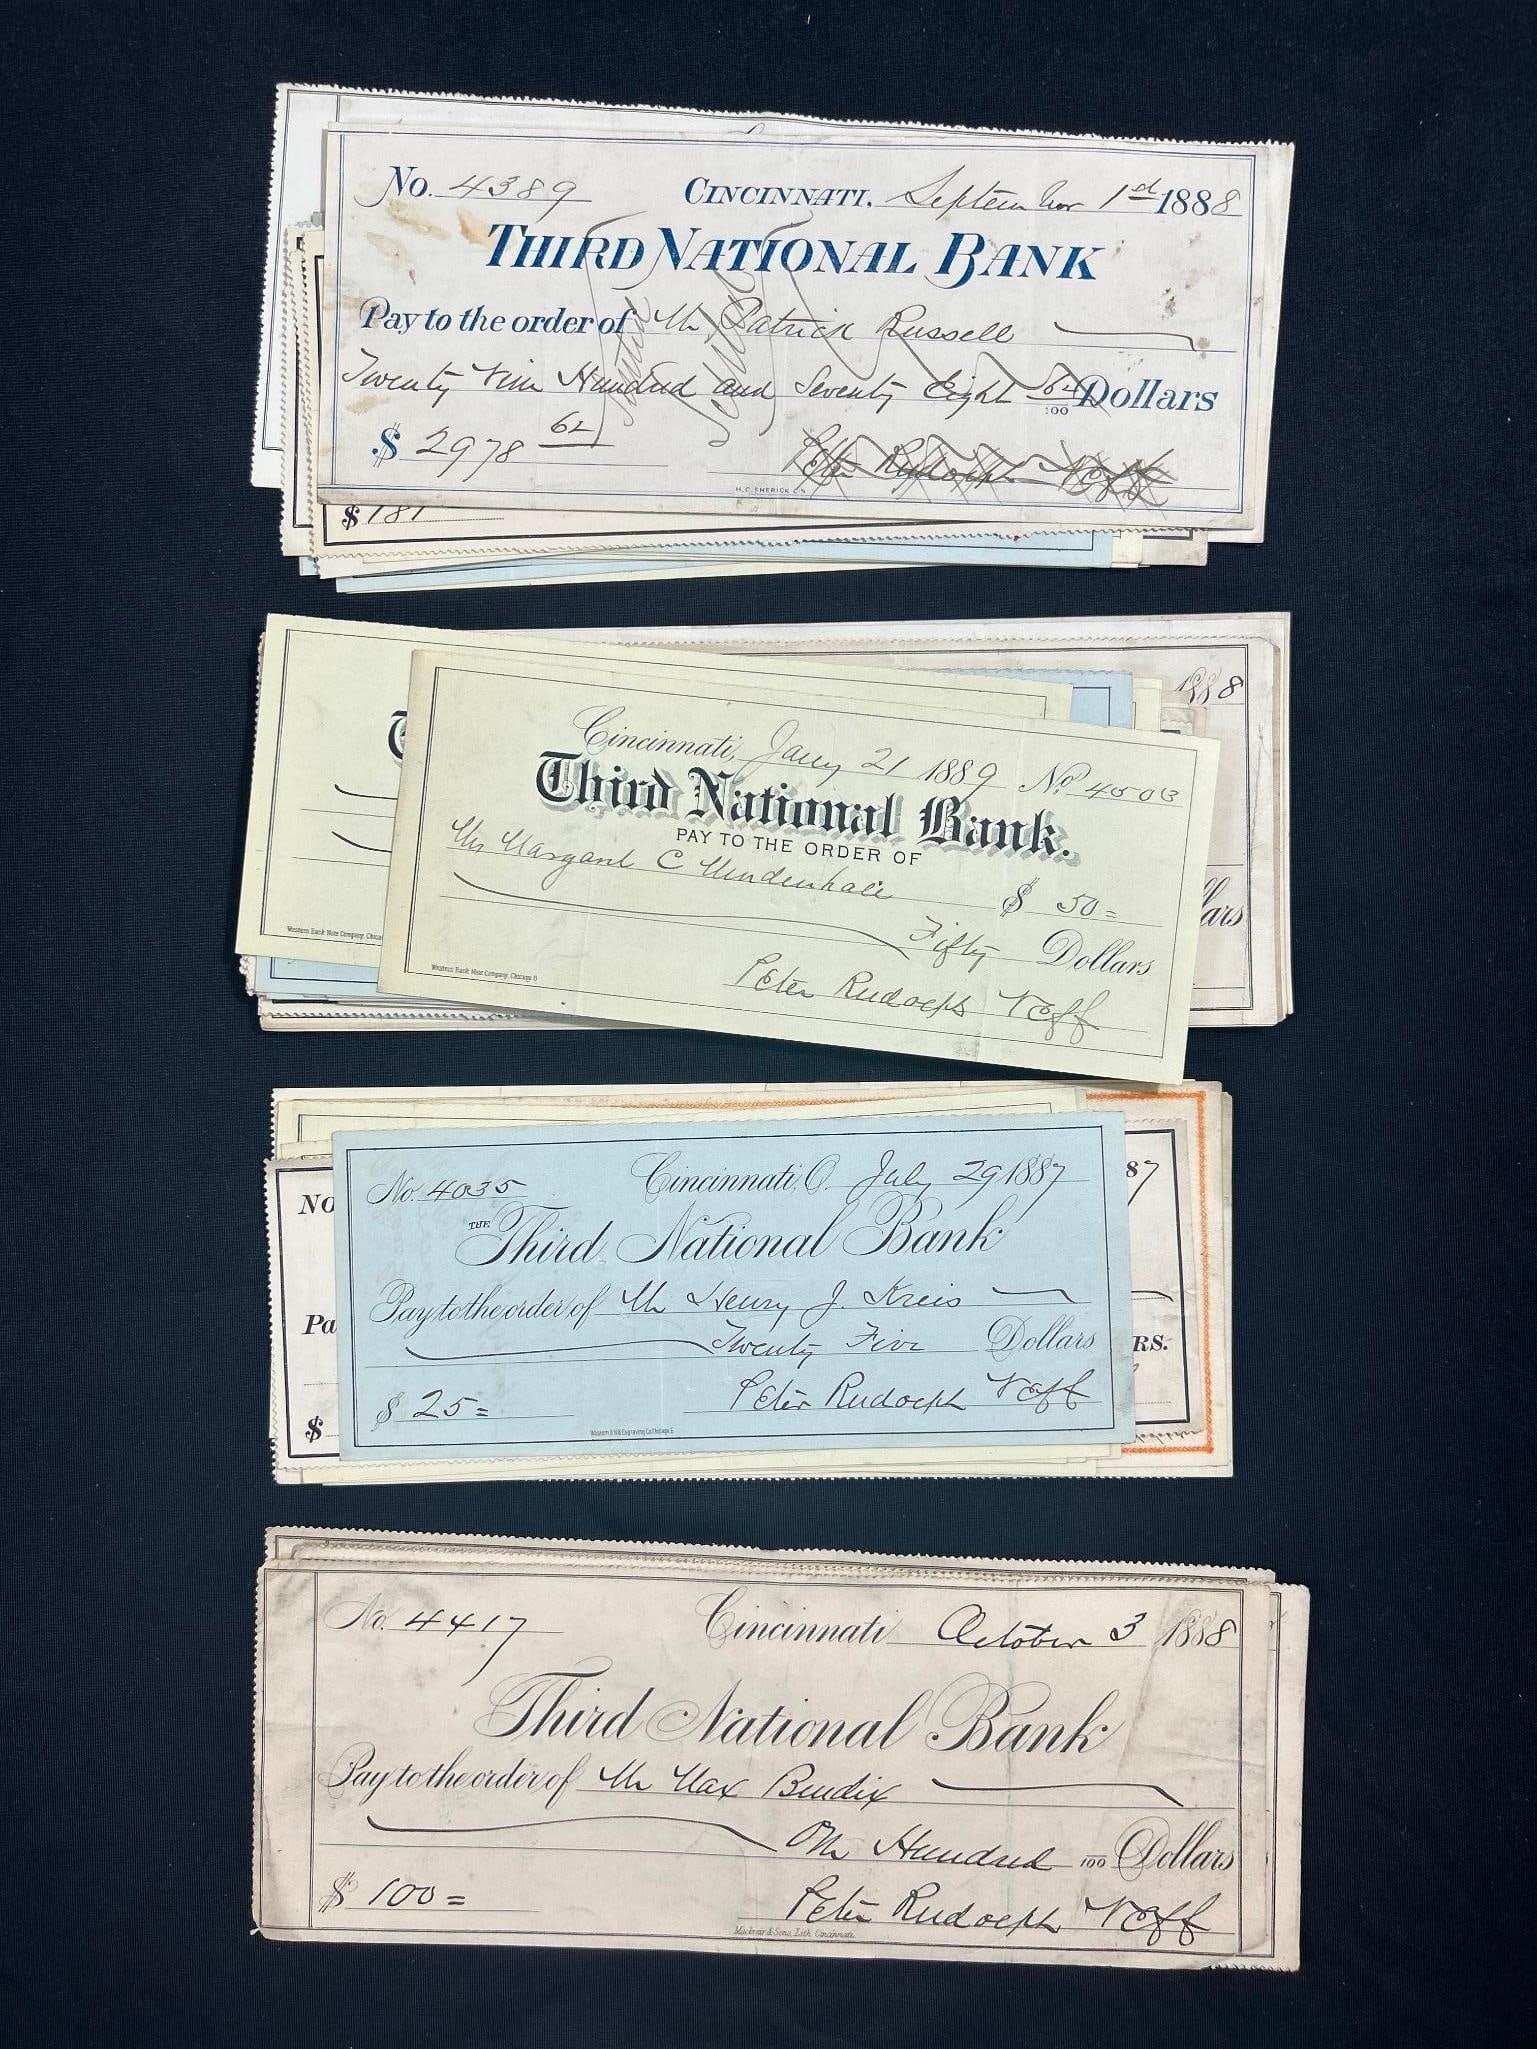 No. 4389 CINCINNATI, September 1st 1888
THIRD NATIONAL BANK
Pay to the order of Mr Patrick Russell
Twenty Nine Hundred and Seventy Eight 62/100 Dollars
$ 2978 62
Peter Rudolph Neff
$ 181
1888
Cincinnati, Jany 21 1889 No. 4503
Third National Bank.
PAY TO THE ORDER OF
Mrs Margaret C Mendenhall $ 50=
Fifty Dollars
Peter Rudolph Neff
Western Bank Note Company, Chicago
lars
Western Bank Note Company, Chica
No. 4035 Cincinnati, O. July 29 1887
THE Third National Bank
Pay to the order of Mr Henry J. Kreis
Twenty Five Dollars
$ 25= Peter Rudolph Neff
NO
Pa
$
87
RS.
No. 4417 Cincinnati October 3 1888
Third National Bank
Pay to the order of Mr Max Bendix
One Hundred /100 Dollars
$ 100= Peter Rudolph Neff